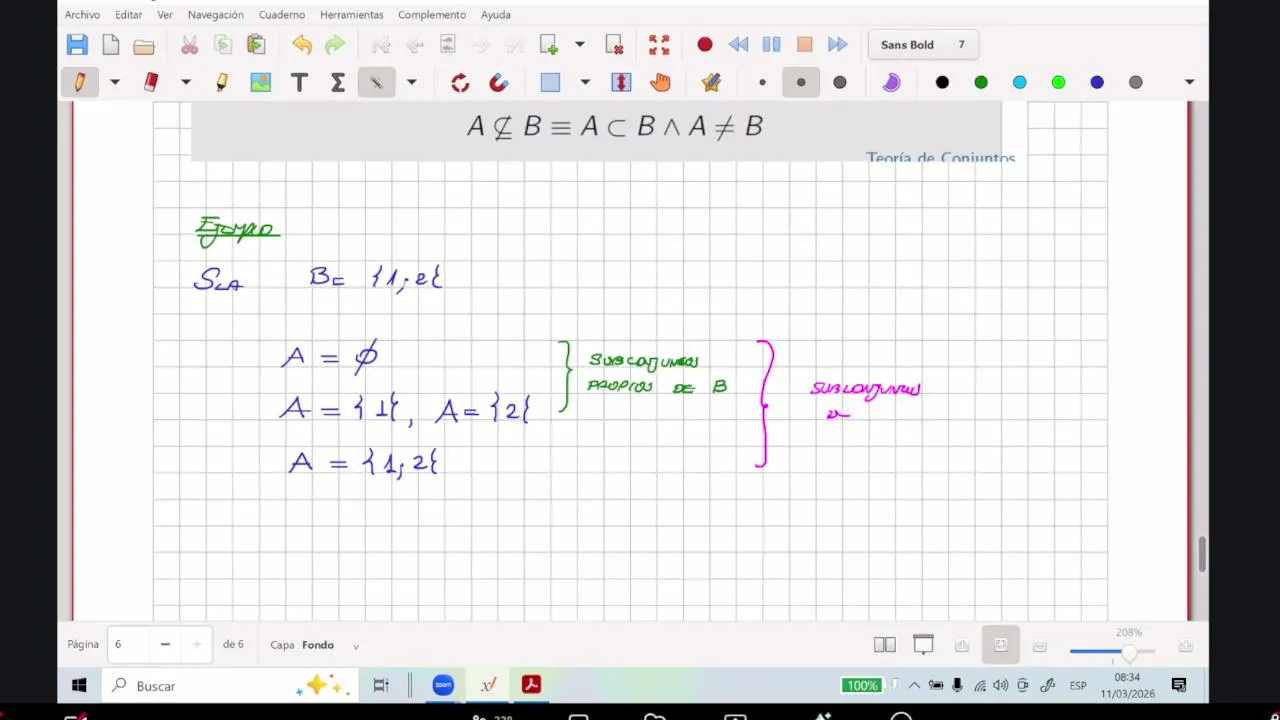 Archivo Editar Ver Navegación Cuaderno Herramientas Complemento Ayuda
Sans Bold 7
A ⊊ B ≡ A ⊂ B ∧ A ≠ B
Teoría de Conjuntos
Ejemplo
Sea B= {1; 2}
A = ∅
A = {1}, A = {2}
A = {1; 2}
SUBCONJUNTOS
PROPIOS DE B
SUBCONJUNTOS
Página 6 de 6 Capa Fondo
208%
Buscar
zoom
100%
ESP
08:34
11/03/2026